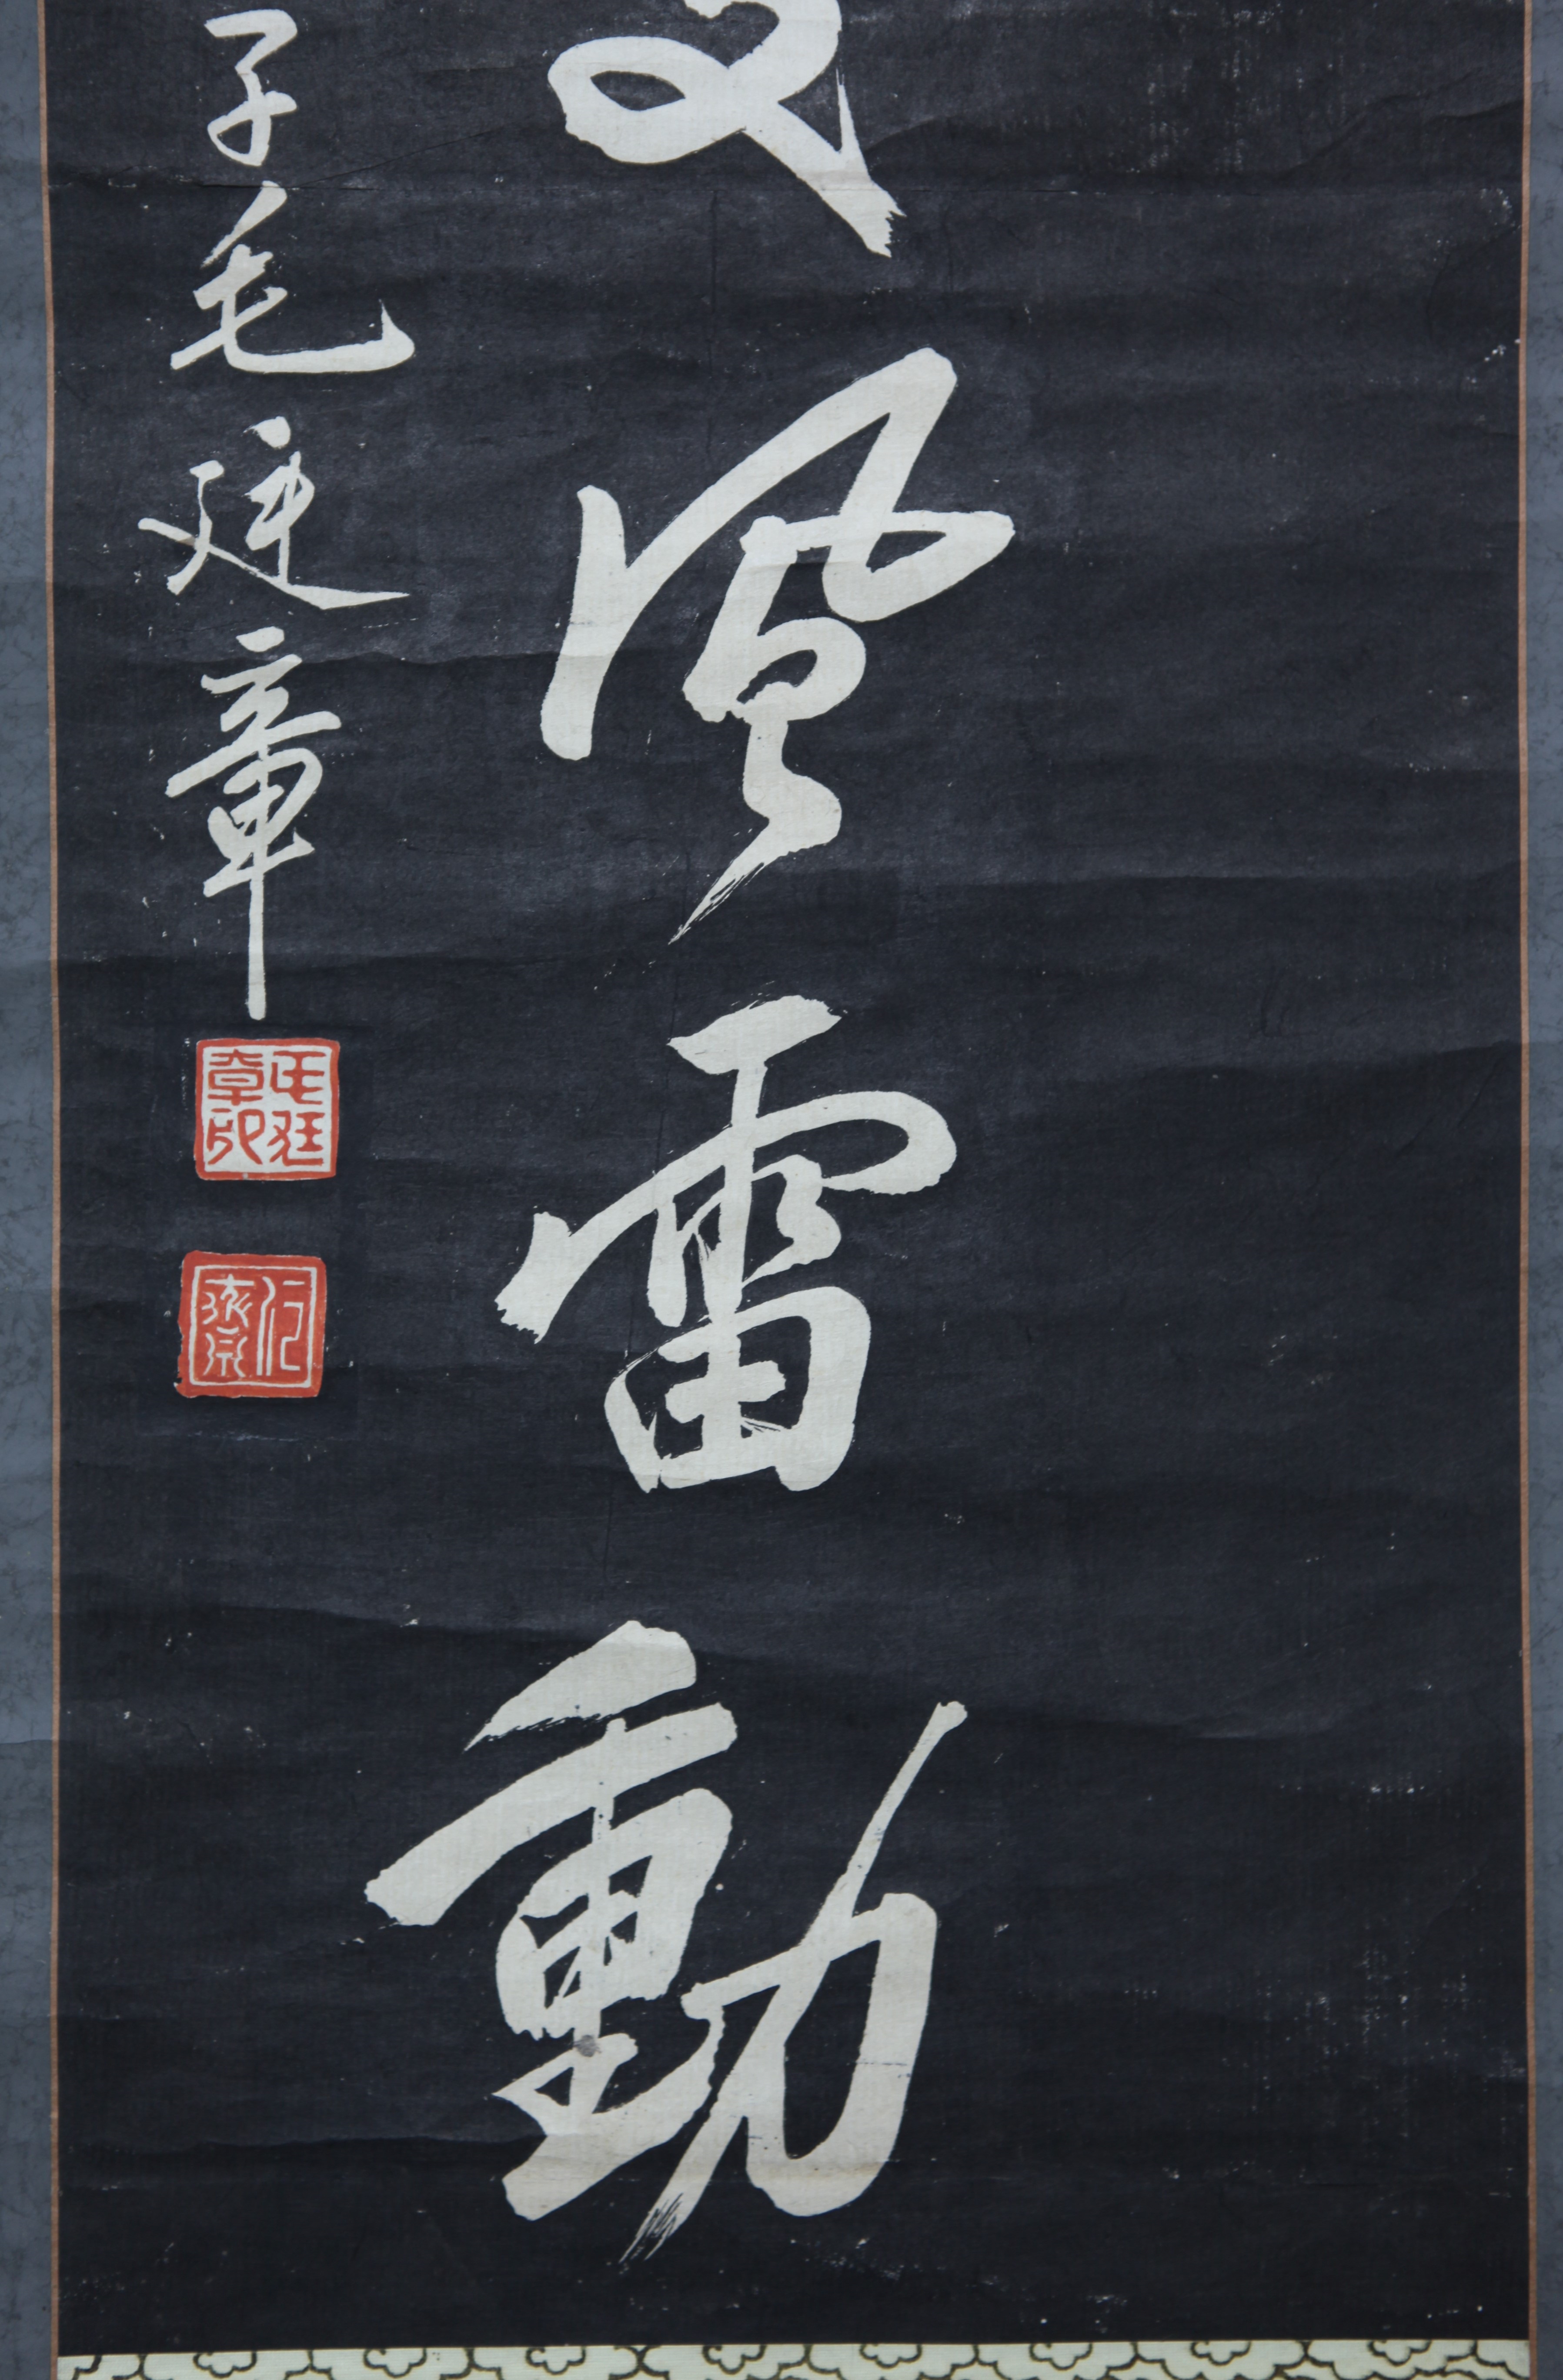 風雷動
子毛廷章
毛廷章印